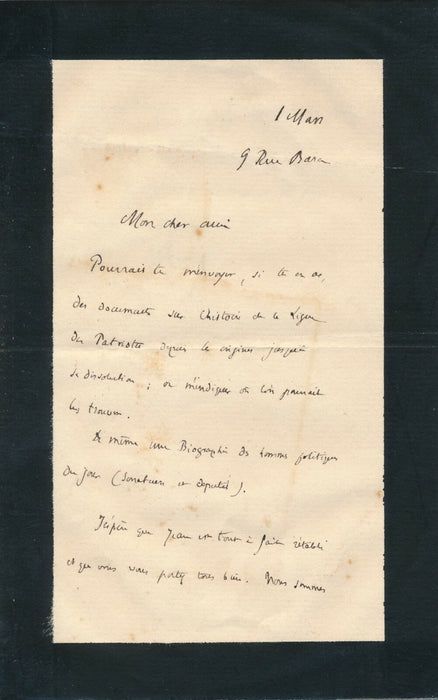 1 Mars
9 Rue Bara
Mon cher ami
Pourrais tu m'envoyer, si tu en as,
des documents sur l'histoire de la Ligue
des Patriotes depuis les origines jusqu'à
sa dissolution ; ou m'indiquer où l'on pourrait
les trouver.
De même une Biographie des hommes politiques
du jour (sénateurs et députés).
J'espère que Jean est tout à fait rétabli
et que vous vous portez tous bien. Nous sommes